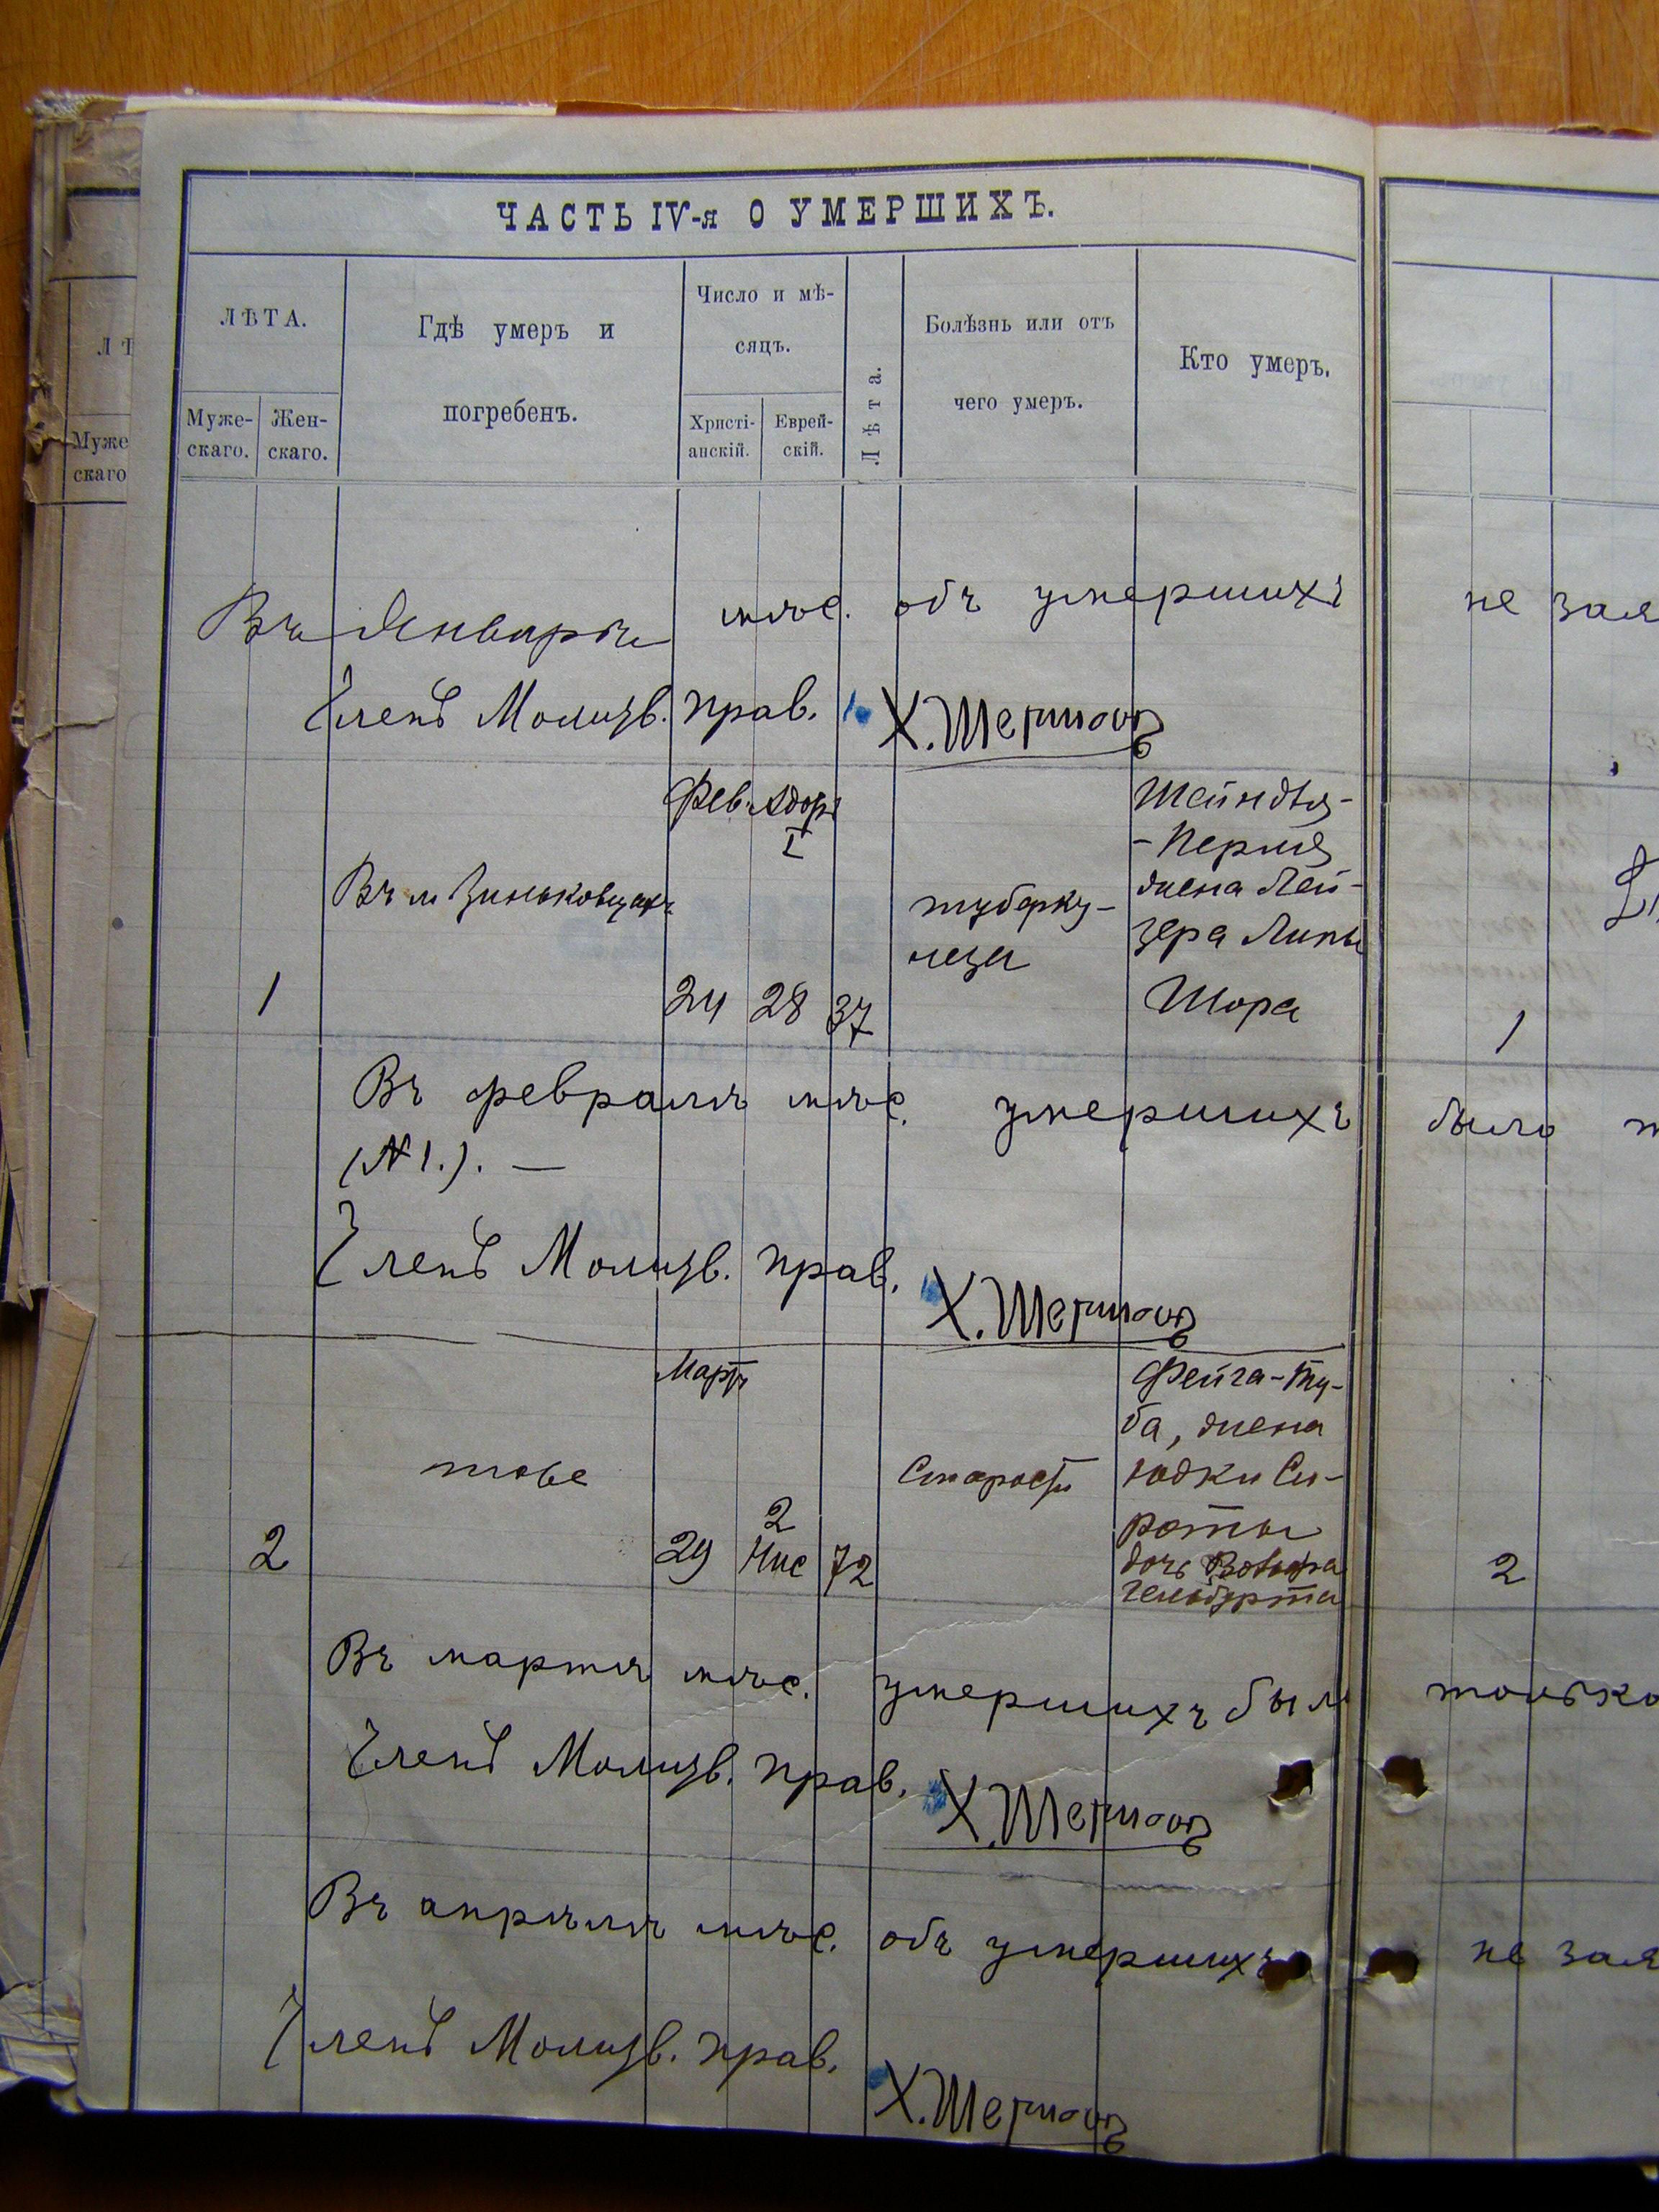 ЧАСТЬ IV-я О УМЕРШИХЪ.
ЛѢТА.
Муже-
скаго.
Жен-
скаго.
Гдѣ умеръ и
погребенъ.
Число и мѣ-
сяцъ.
Христі-
анскій.
Еврей-
скій.
Лѣта.
Болѣзнь или отъ
чего умеръ.
Кто умеръ.
Муже
скаго
Въ Январѣ мѣс. объ умершихъ не зая
Членъ Молитв. Прав.
Фев. Адаръ
I
Шейндля-
-Перля
Въ м Зиньковцахъ
туберку-
леза
жена Лей-
зера Липы
Шора
1 24 28 37 1
Въ февралѣ мѣс. умершихъ было т
(№ 1.). —
Членъ Молитв. Прав.
Мартъ
Фейга-Ту-
ба, жена
тоже
Старость
Юдки Си-
роты
дочь Вольфа
Гельбурта
2 29 2 Нис 72 2
Въ мартѣ мѣс. умершихъ было только
Членъ Молитв. Прав.
Въ апрѣлѣ мѣс. объ умершихъ не зая
Членъ Молитв. Прав.